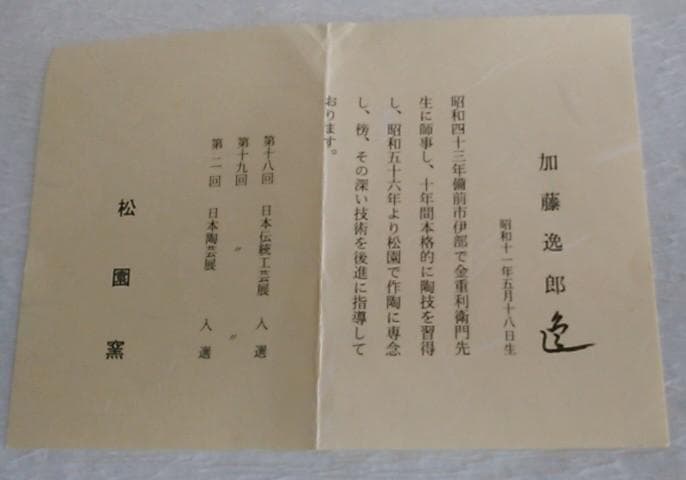 加藤逸郎 逸
昭和十一年五月十八日生
昭和四十三年備前市伊部で金重利衛門先
生に師事し、十年間本格的に陶技を習得
し、昭和五十六年より松園で作陶に専念
し、榜、その深い技術を後進に指導して
おります。
第十八回 日本伝統工芸展 入選
第十九回 〃 〃
第二回 日本陶芸展 入選
松園窯